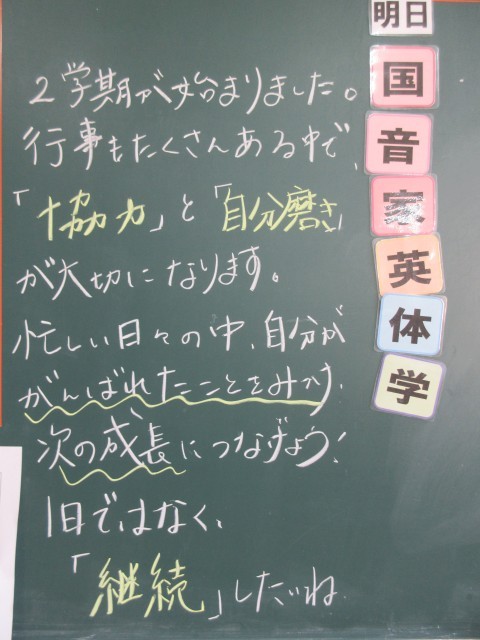 ２学期が始まりました。
行事もたくさんある中で、
「協力」と「自分磨き」
が大切になります。
忙しい日々の中、自分が
がんばれたことをみつけ、
次の成長につなげよう!
1日ではなく、
「継続」したいね
明日
国
音
家
英
体
学